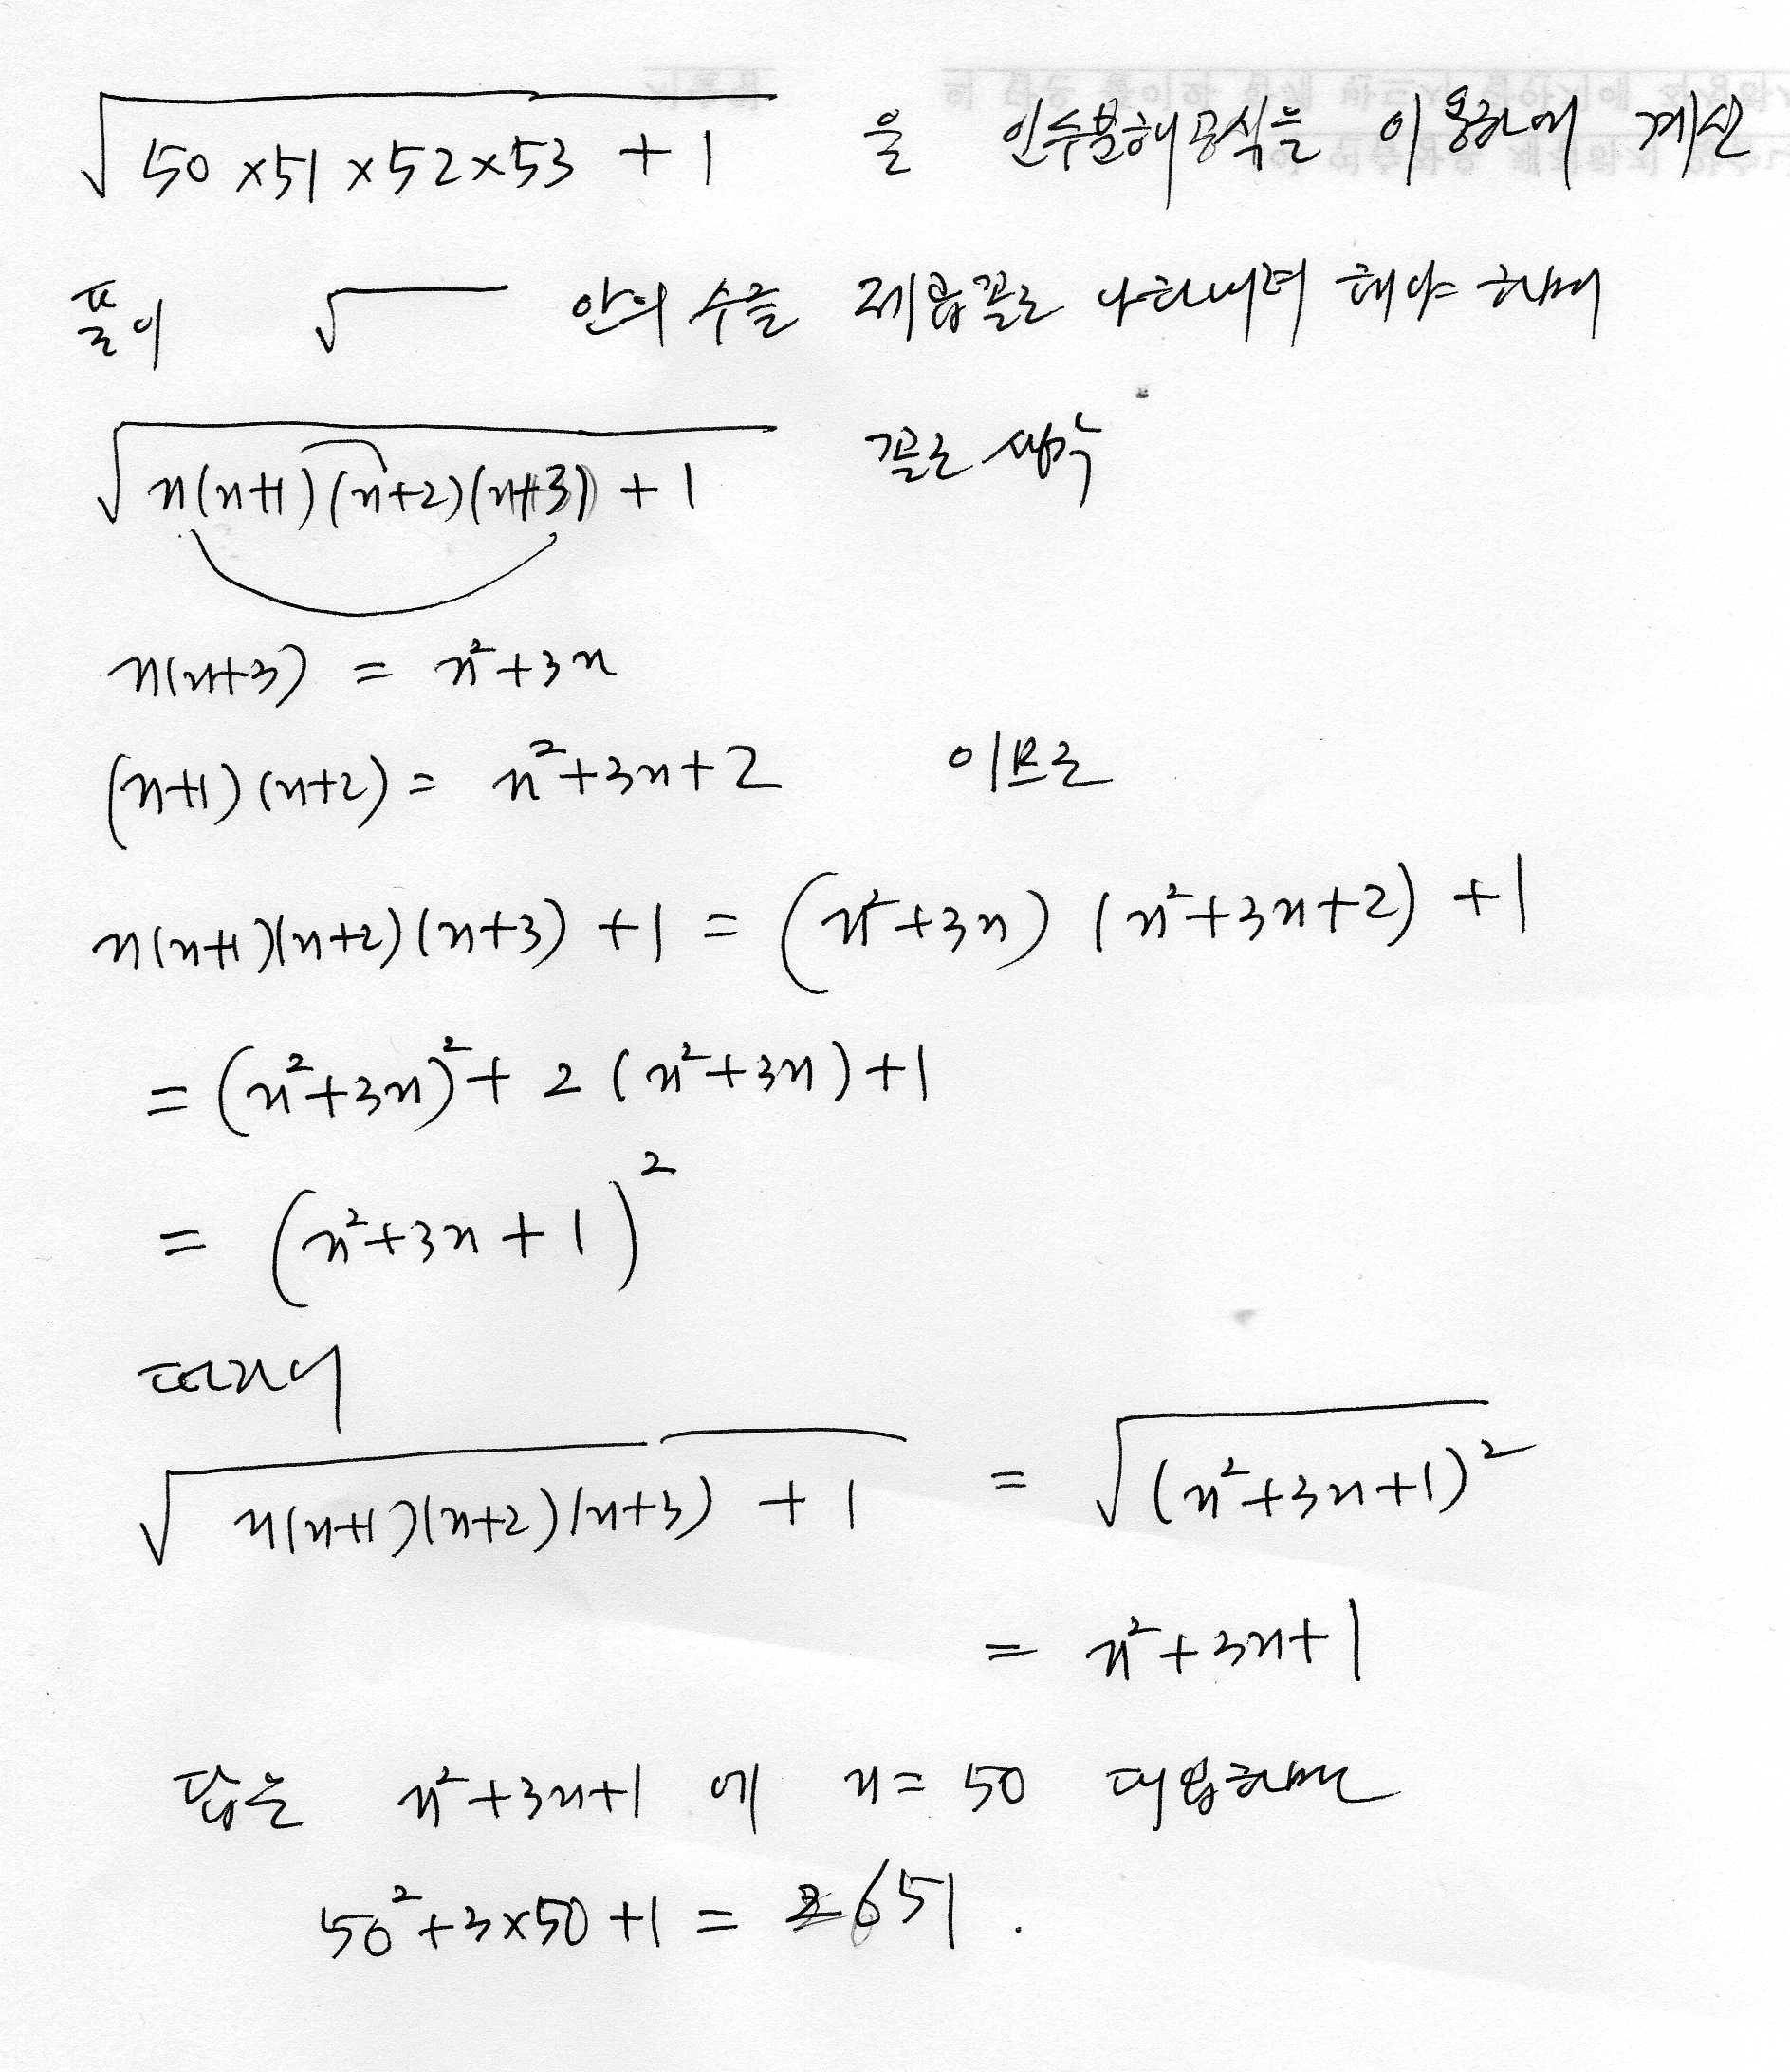 √(50×51×52×53 + 1) 을 인수분해공식을 이용하여 계산
풀이 √ 안의 수를 제곱꼴로 나타내려 해야 하며
√(n(n+1)(n+2)(n+3) + 1) 꼴로 생각
n(n+3) = n²+3n
(n+1)(n+2) = n²+3n+2 이므로
n(n+1)(n+2)(n+3) +1 = (n²+3n)(n²+3n+2) +1
= (n²+3n)² + 2(n²+3n)+1
= (n²+3n+1)²
따라서
√(n(n+1)(n+2)(n+3) + 1) = √(n²+3n+1)²
= n²+3n+1
답은 n²+3n+1 에 n=50 대입하면
50²+3×50+1 = 2651.